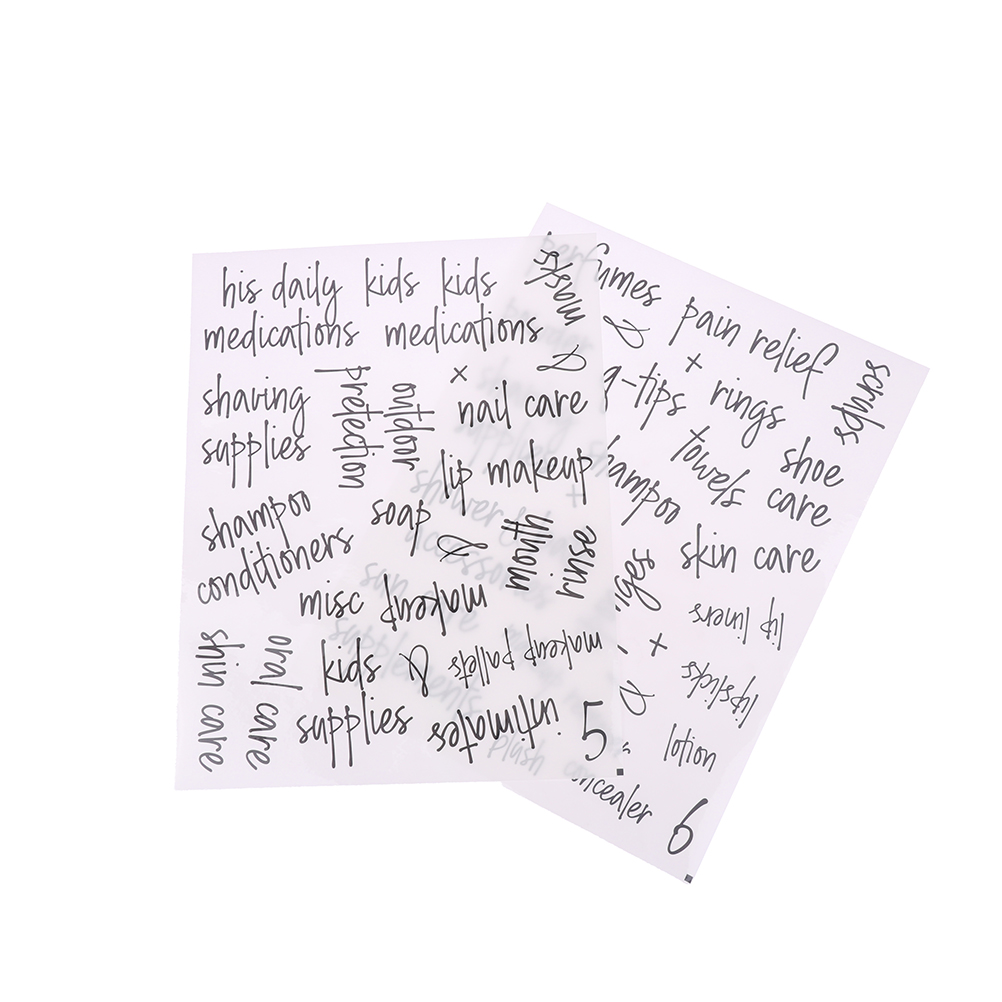 his daily kids kids
medications medications
masks
&
shaving
supplies
pretection
outdoor
x
nail care
lip makeup
shampoo
conditioners
soap
&
mouth
rinse
misc makeup
skin care
oral care
kids &
supplies
makeup pallets
intimates
5
perfumes
&
pain relief
scrubs
+
q-tips
rings
shoe
care
towels
shampoo
skin care
lip liners
+
&
lipsticks
lotion
concealer
6
shower &
accessories
sun care
supplements
plush